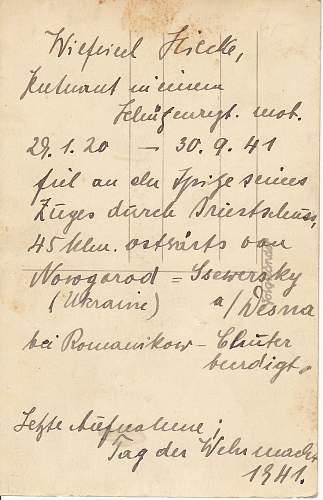 Wilfried Hicke,
Leutnant in einem
Schützenrgt. mot.
29.1.20 – 30.9.41
fiel an der Spitze seines
Zuges durch
45 klm. ostwärts von
Nowgorod = Ssewersky
(Ukraine) a/Desna
bei Romanikow –
Letzte Aufnahme;
Tag der Wehrmacht
1941.